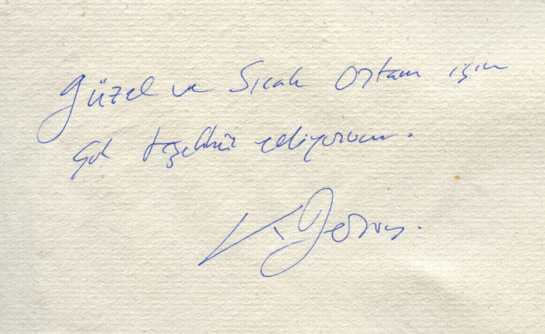 Güzel ve Sıcak Ortam için
çok teşekkür ediyorum.